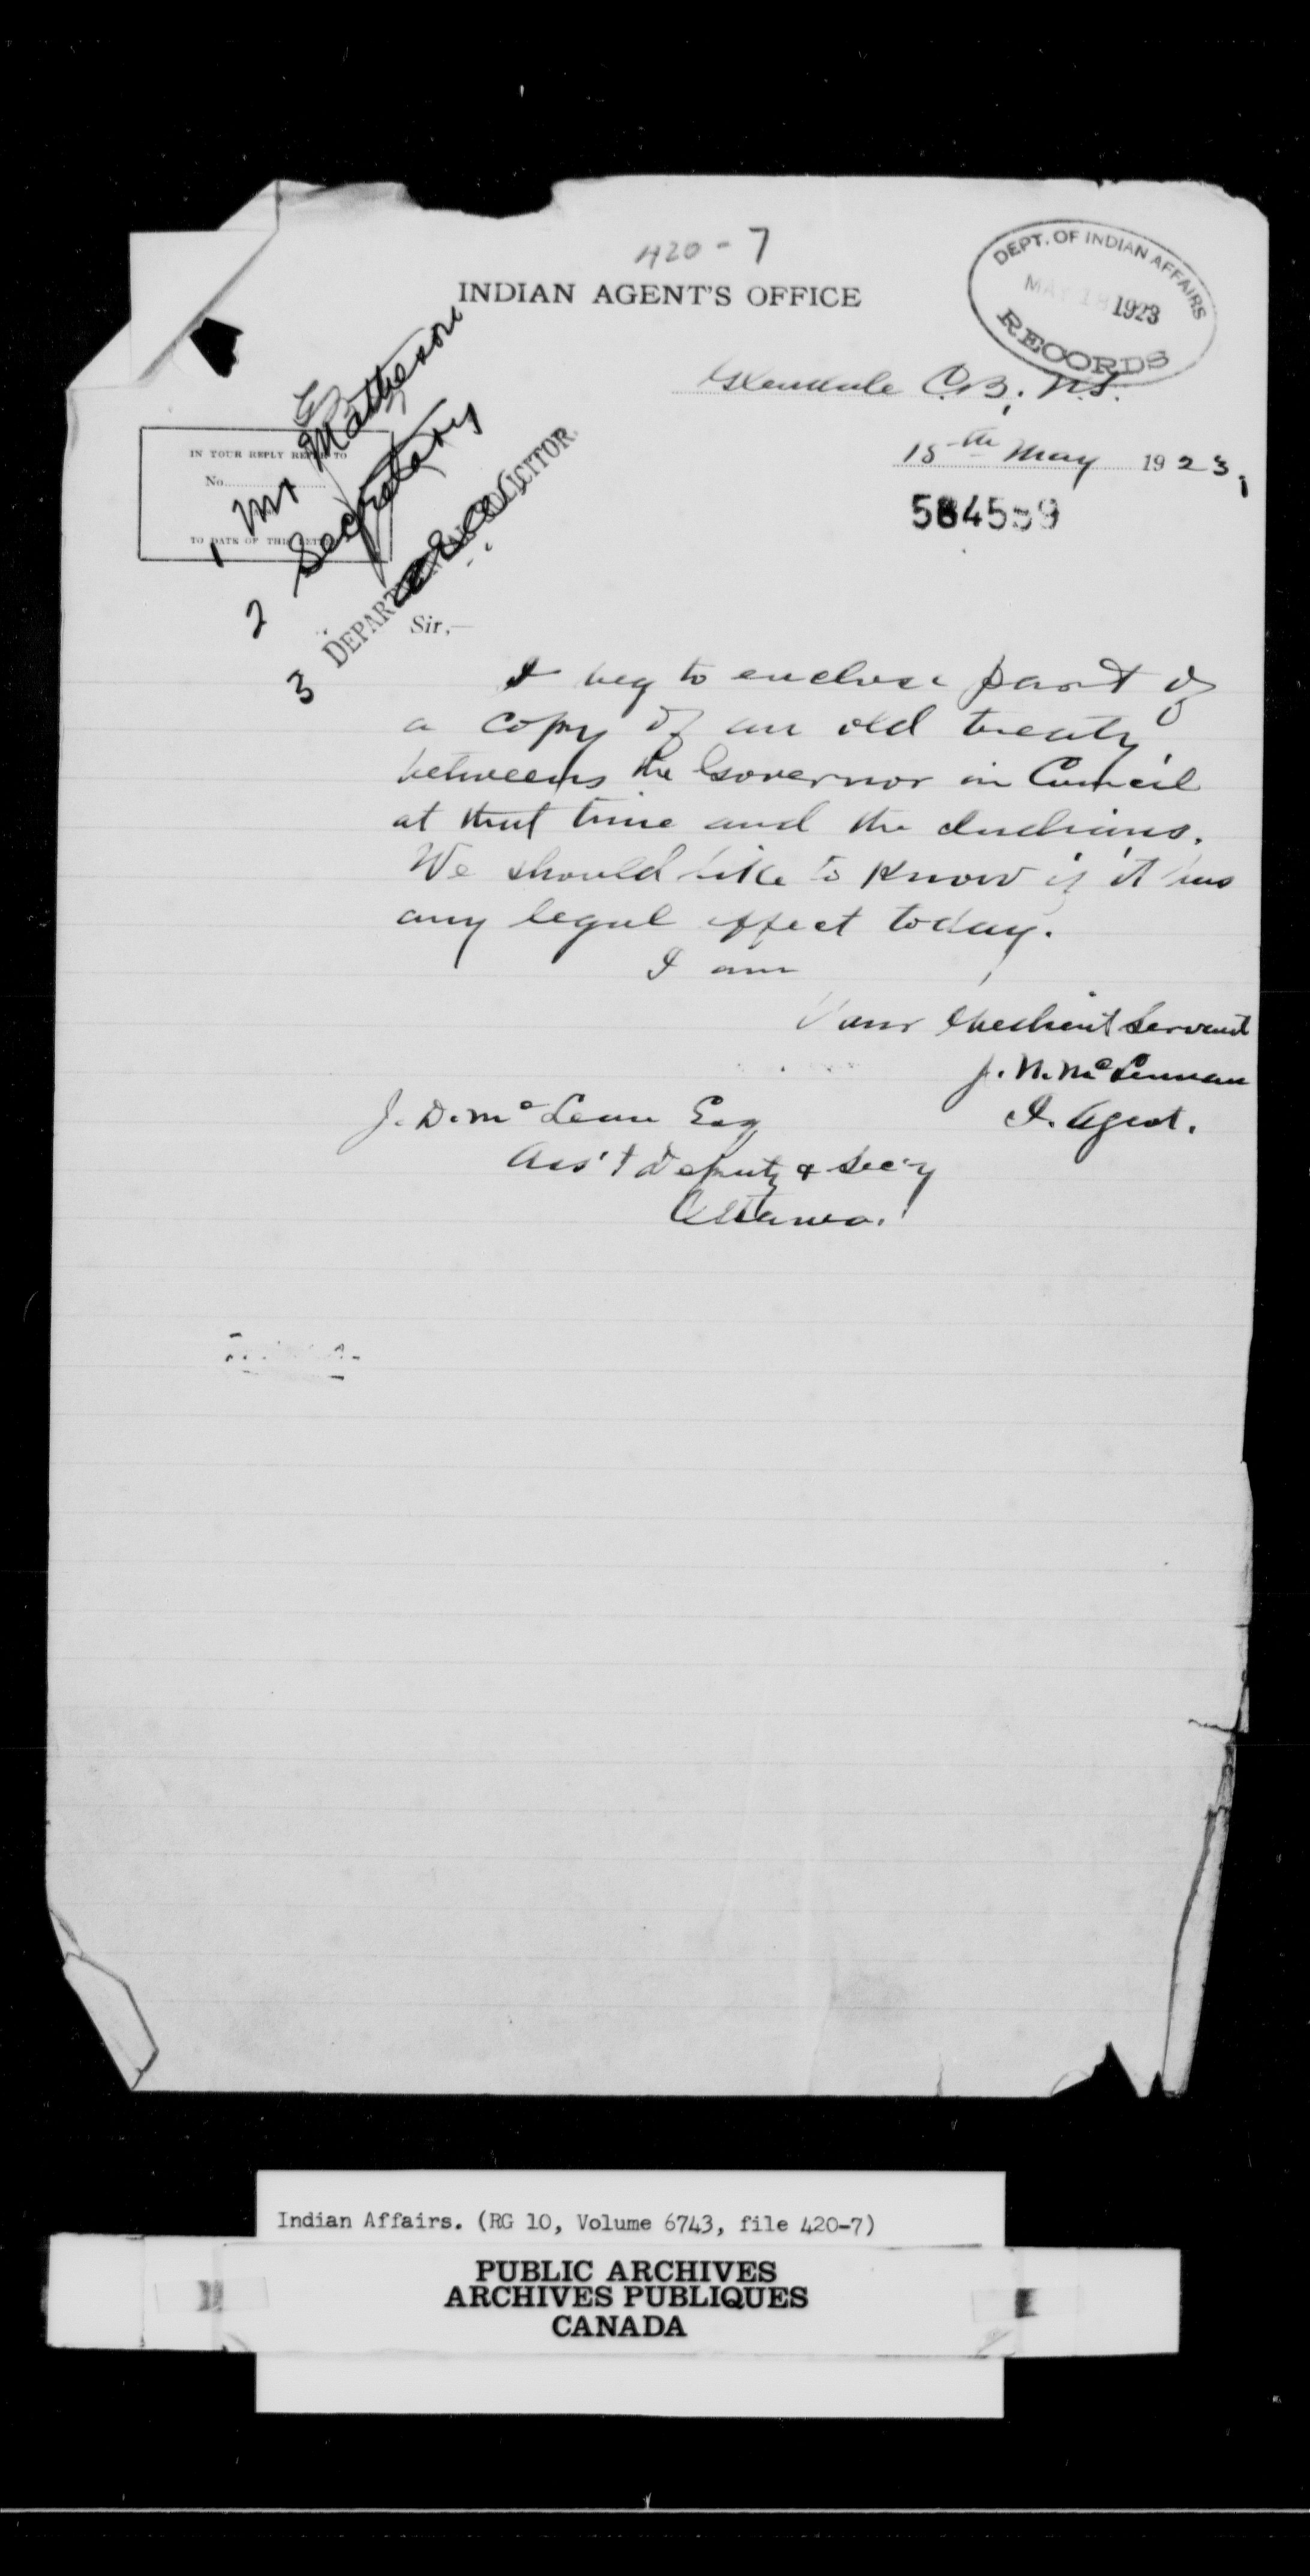 420-7
INDIAN AGENT'S OFFICE
DEPT. OF INDIAN AFFAIRS
MAY 18 1923
RECORDS
Glendale C.B., N.S.
15th May 1923,
584559
IN YOUR REPLY REFER TO
No.
TO DATE OF THIS LETTER
1 Mr Matheson
2 Secretary
3 DEPARTMENTAL SOLICITOR.
Sir,—
I beg to enclose part of
a copy of an old treaty
betweens the Governor in Council
at that time and the Indians.
We should like to know if it has
any legal effect today.
I am
Your Obedient Servant
J. D. Mc Lean Esq
I. Agent.
Ass't Deputy & Sec'y
Ottawa.
Indian Affairs. (RG 10, Volume 6743, file 420-7)
PUBLIC ARCHIVES
ARCHIVES PUBLIQUES
CANADA